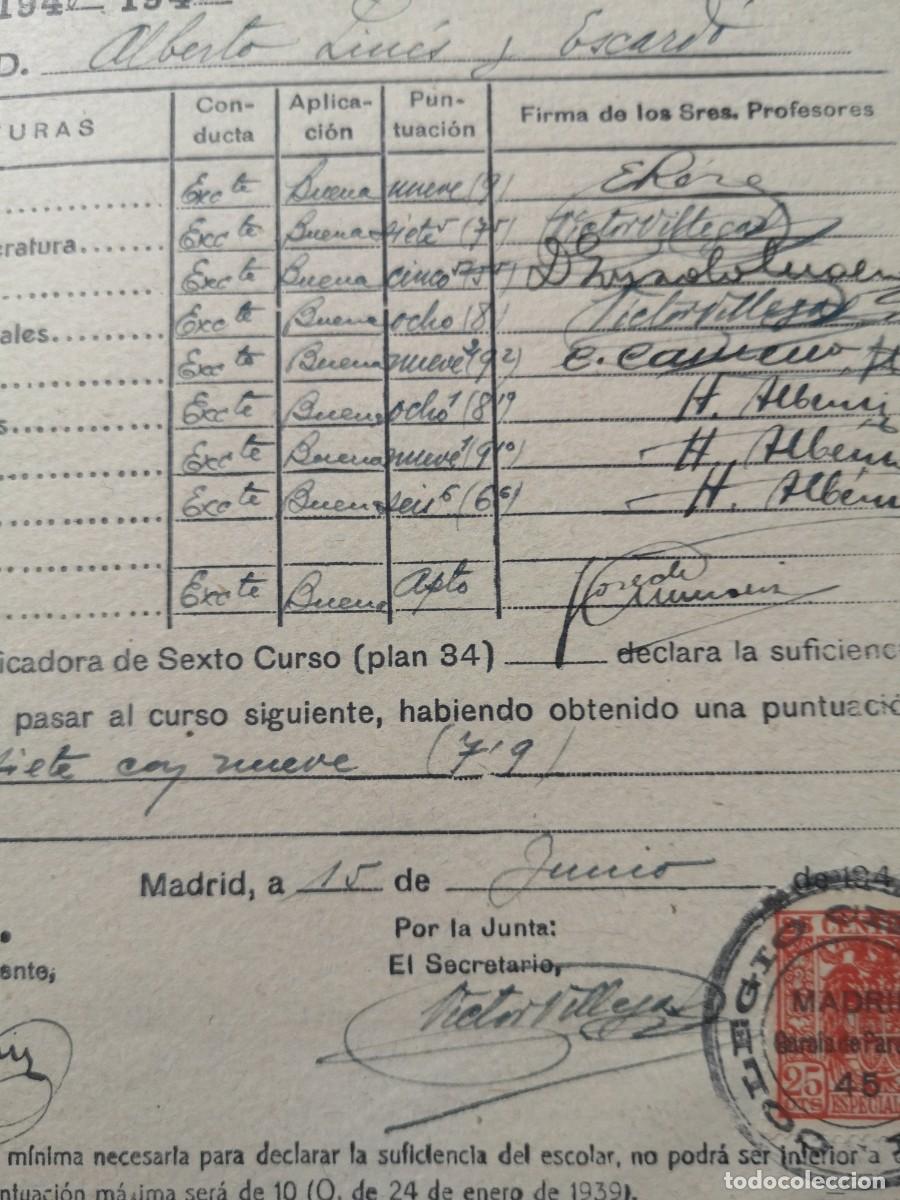 194 194
D. Alberto Linés y Escardó
TURAS Con-ducta Aplica-ción Pun-tuación Firma de los Sres. Profesores
Excte Buena nueve (9)
eratura Excte Buena siete⁵ (7⁵) Victor Villegas
Excte Buena cinco⁵ (5⁵)
ales Excte Buena ocho (8) Victor Villegas
Excte Buena nueve² (9²)
s Excte Buena ocho¹ (8¹) H. Albéniz
Excte Buena nueve¹ (9¹) H. Albéniz
Excte Buena seis⁶ (6⁶) H. Albéniz
Excte Buena Apto
ficadora de Sexto Curso (plan 34) declara la suficienc
pasar al curso siguiente, habiendo obtenido una puntuació
siete con nueve (7'9)
Madrid, a 15 de Junio de 194
Por la Junta:
ente, El Secretario,
Victor Villegas
COLEGIO
25 CENT
MADRI
45
25 CTS ESPECIAL
mínima necesaria para declarar la suficiencia del escolar, no podrá ser inferior a
ntuación máxima será de 10 (O. de 24 de enero de 1939).
todocoleccion